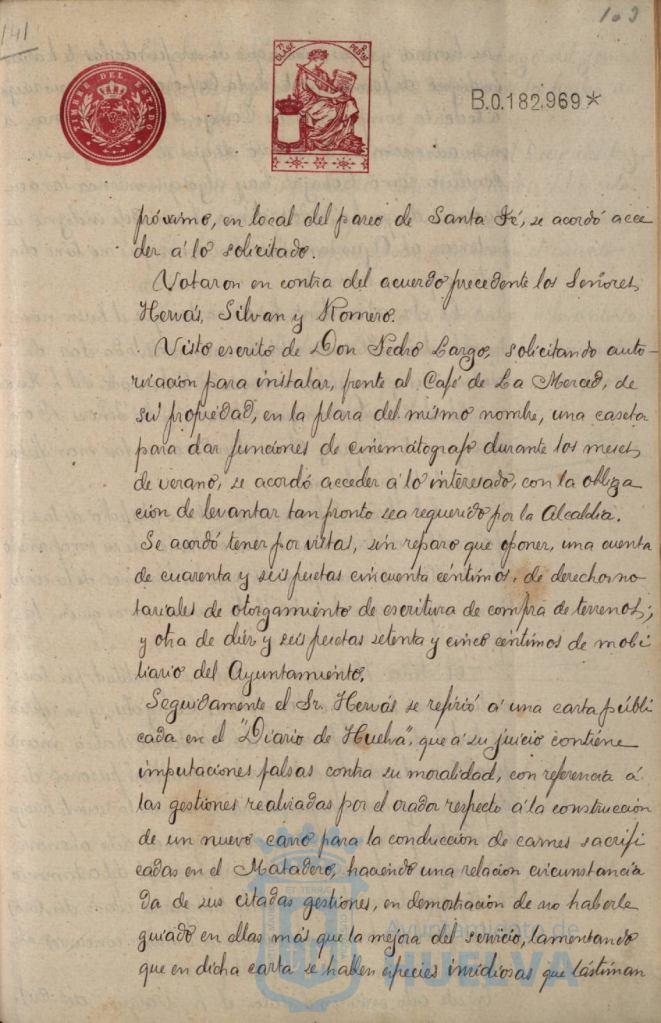 141
103
TIMBRE DEL ESTADO
7ª CLASE
PESTAS
B.0.182,969*
próximo, en local del paseo de Santa Fé, se acordó acce
der á lo solicitado.
Votaron en contra del acuerdo precedente los Señores,
Hervás, Silvan y Romero.
Visto escrito de Don Pedro Largo, solicitando auto-
rizacion para instalar, frente al Café de La Merced, de
su propiedad, en la plaza del mismo nombre, una caseta
para dar funciones de cinematógrafo durante los meses
de verano, se acordó acceder á lo interesado, con la obliga
cion de levantar tan pronto sea requerido por la Alcaldía.
Se acordó tener por vistas, sin reparo que oponer, una cuenta
de cuarenta y seis pesetas cincuenta céntimos, de derechos no-
tariales de otorgamiento de escritura de compra de terrenos;
y otra de diez y seis pesetas setenta y cinco céntimos de mobi
liario del Ayuntamiento.
Seguidamente el Sr. Hervás se refirió á una carta públi
cada en el "Diario de Huelva", que á su juicio contiene
imputaciones falsas contra su moralidad, con referencia á
las gestiones realizadas por el orador respecto á la construccion
de un nuevo carro para la conducción de carnes sacrifi
cadas en el Matadero, haciendo una relacion circunstancia
da de sus citadas gestiones, en demostracion de no haberle
guiado en ellas más que la mejora del servicio, lamentando
que en dicha carta se hallen especies insidiosas que lastiman
Ayuntamiento de
HUELVA